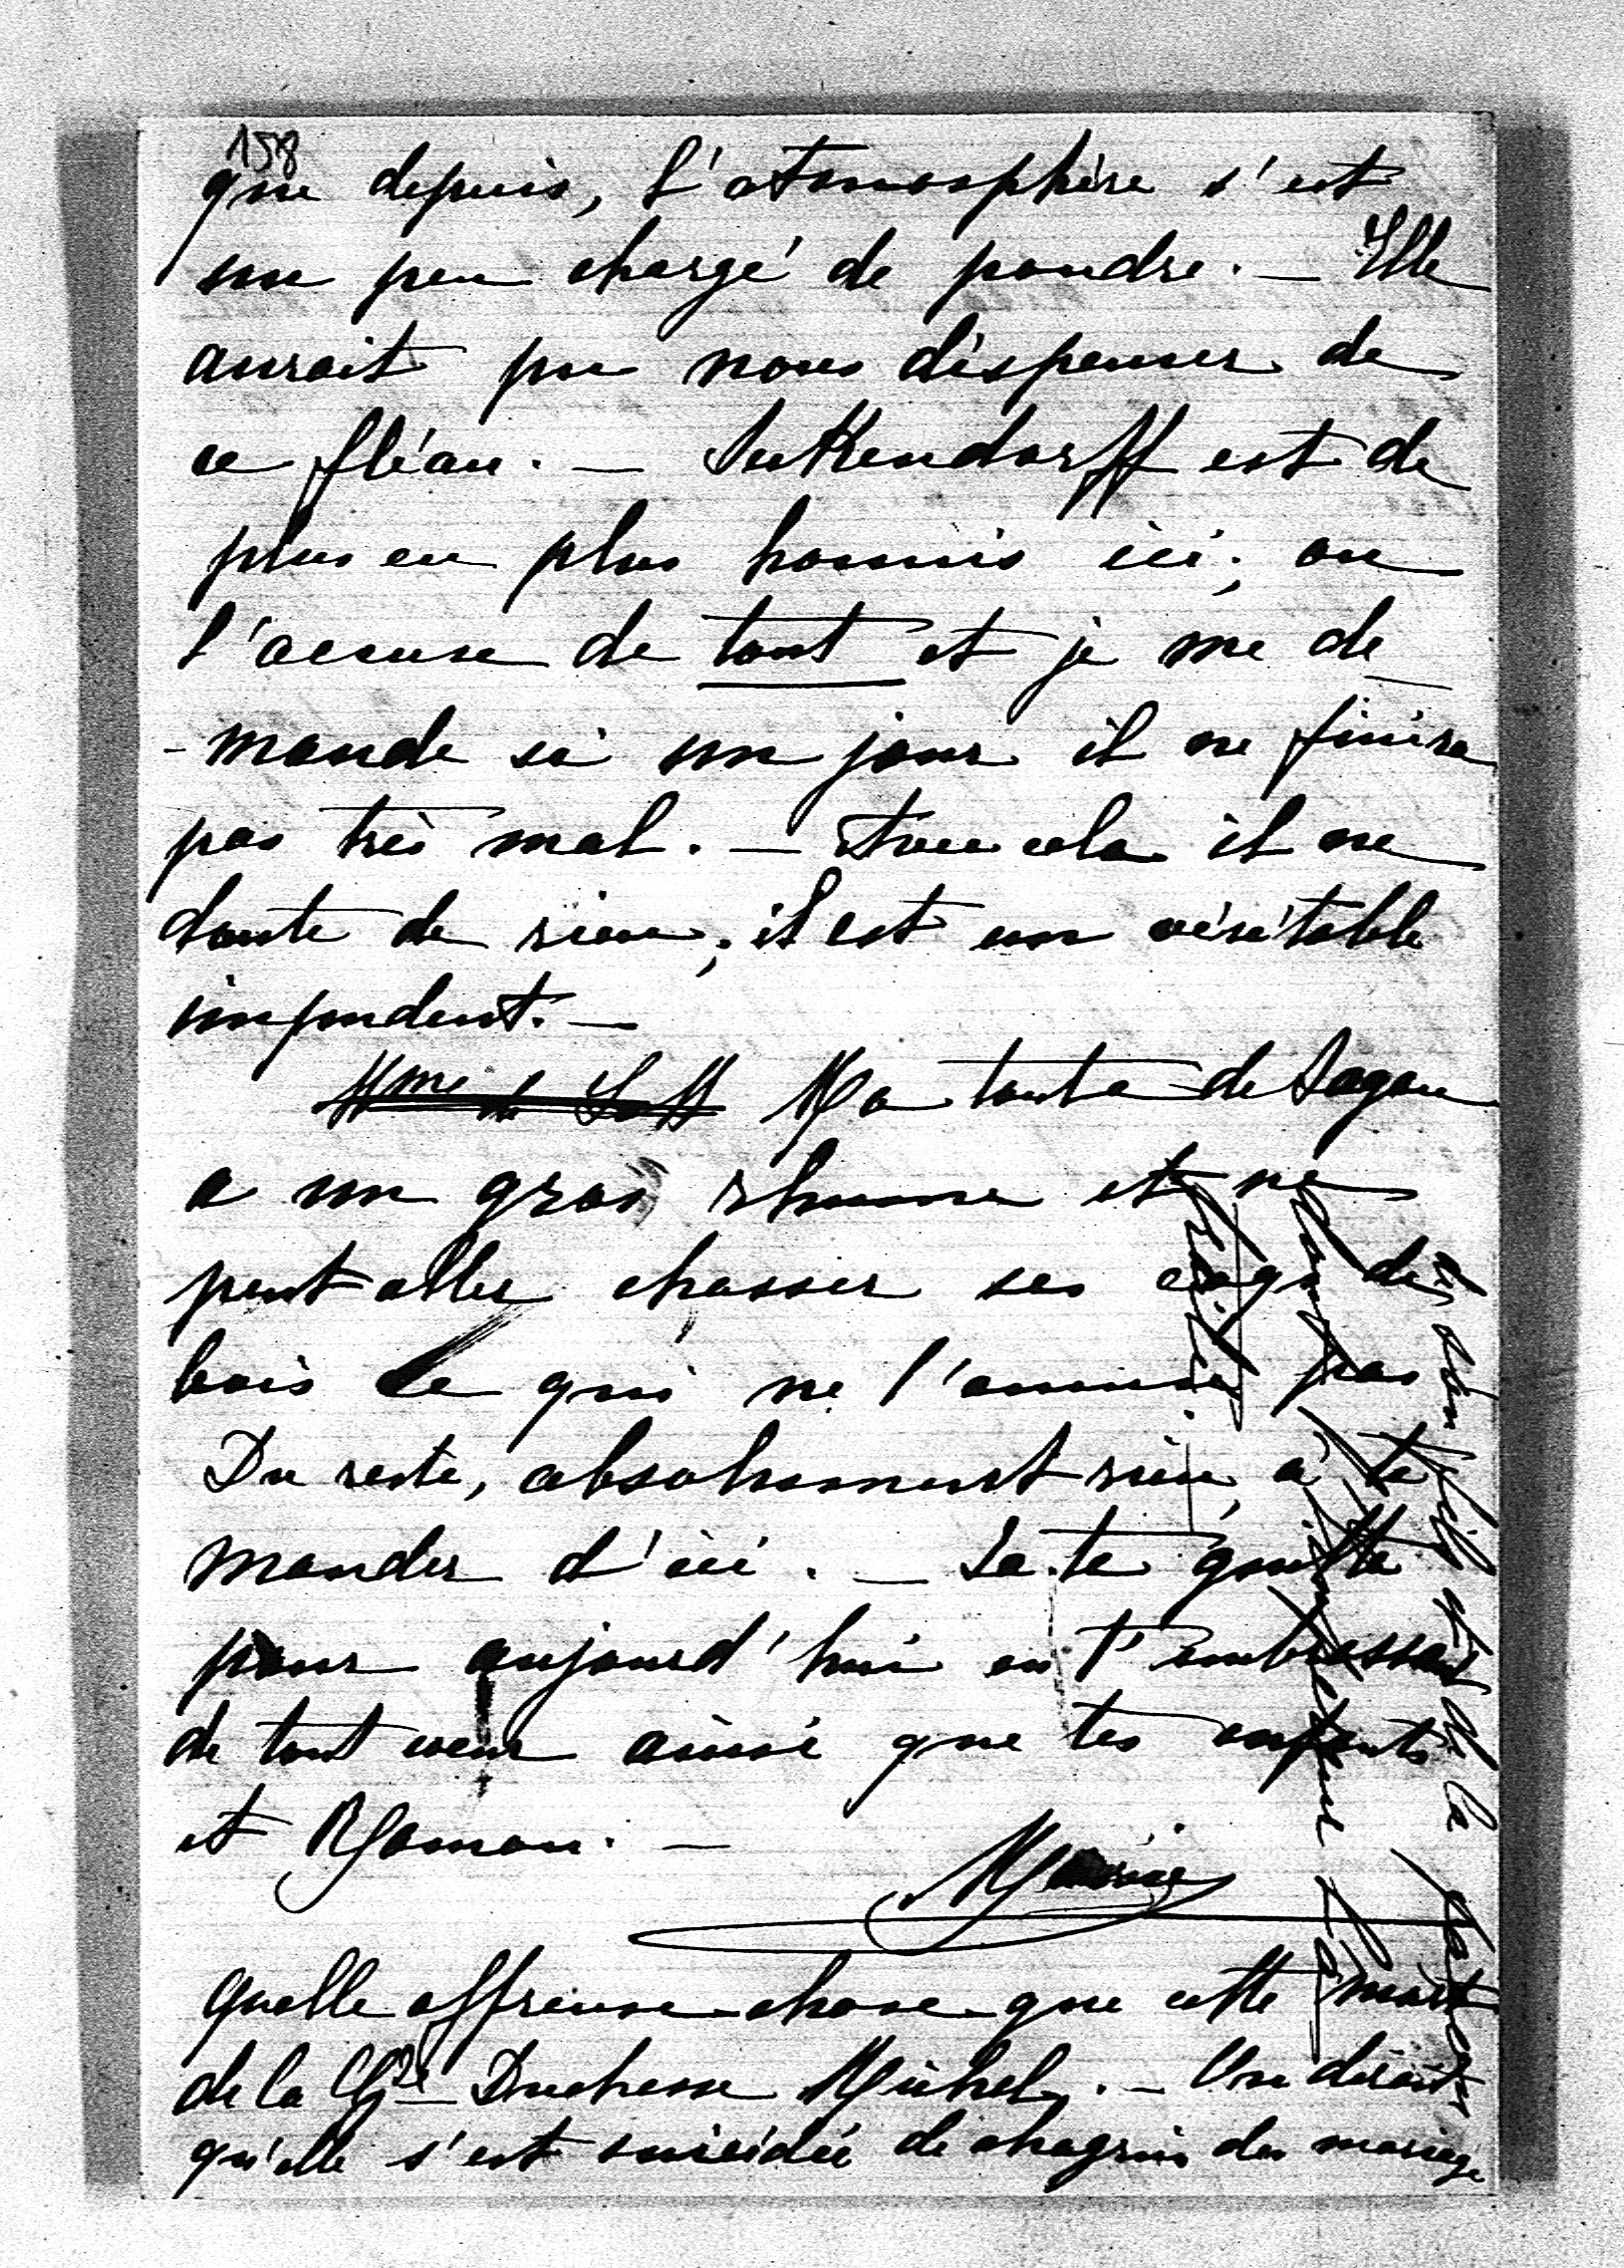 158
que depuis, l'atmosphère s'est
un peu chargé de poudre. — Elle
aurait pu nous dispenser de
ce fléau. — Sukkendorff est de
plus en plus honnis ici; on
l'accuse de tout et je me de
-mande si un jour il ne finira
pas très mal. — Avec cela il ne
doute de rien; il est un véritable
impudent. —
Mme de Ma tante de Sagan
a un gros rhume et ne
peut aller chasser ses coqs de
bois ce qui ne l'amuse pas
Du reste, absolument rien à te
mander d'ici. — Je te quitte
pour aujourd'hui en t'embrassant
de tout cœur ainsi que tes enfants
et Maman. —
Marie
Quelle affreuse chose que cette mort
de la Gde Duchesse Michel. — On dirait
qu'elle s'est suicidée de chagrin du mariage
de son fils et de la